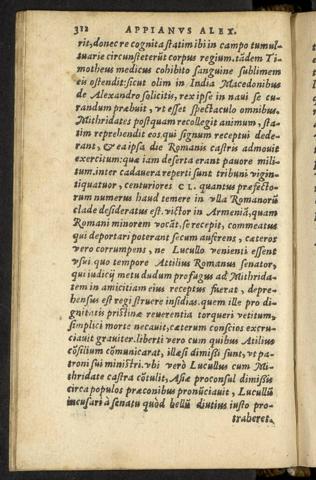 312 APPIANVS ALEX.
rit, donec re cognita statim ibi in campo tumul-
tuarie circunsteterūt corpus regium. tādem Ti-
motheus medicus cohibito sanguine sublimem
eū ostendit: sicut olim in India Macedonibus
de Alexandro solicitis, rex ipse in naui se cu-
randum præbuit, vt esset spectaculo omnibus.
Mithridates postquam recollegit animum, sta-
tim reprehendit eos, qui signum receptui dede-
rant, & ea ipsa die Romanis castris admouit
exercitum: quæ iam deserta erant pauore mili-
tum. inter cadauera reperti sunt tribuni vigin-
tiquatuor, centuriones CL. quantus præfecto-
rum numerus haud temere in vlla Romanorū
clade desideratus est. victor in Armeniā, quam
Romani minorem vocāt, se recepit, commeatus
qui deportari poterant secum auferens, cæteros
vero corrumpens, ne Lucullo venienti essent
vsui. quo tempore Attilius Romanus senator,
qui iudicij metu dudum profugus ad Mithrida-
tem in amicitiam eius receptus fuerat, depre-
hensus est regi struere insidias. quem ille pro di-
gnitatis pristinæ reuerentia torqueri vetitum,
simplici morte necauit, cæterum conscios excru-
ciauit grauiter. liberti vero cum quibus Atilius
cōsilium cōmunicarat, illæsi dimissi sunt, vt pa-
troni sui ministri. vbi verò Lucullus cum Mi-
thridate castra cōtulit, Asiæ proconsul dimissis
circa populos præconibus pronūciauit, Lucullū
incusari à senatu quòd bellū diutius iusto pro-
traheret.